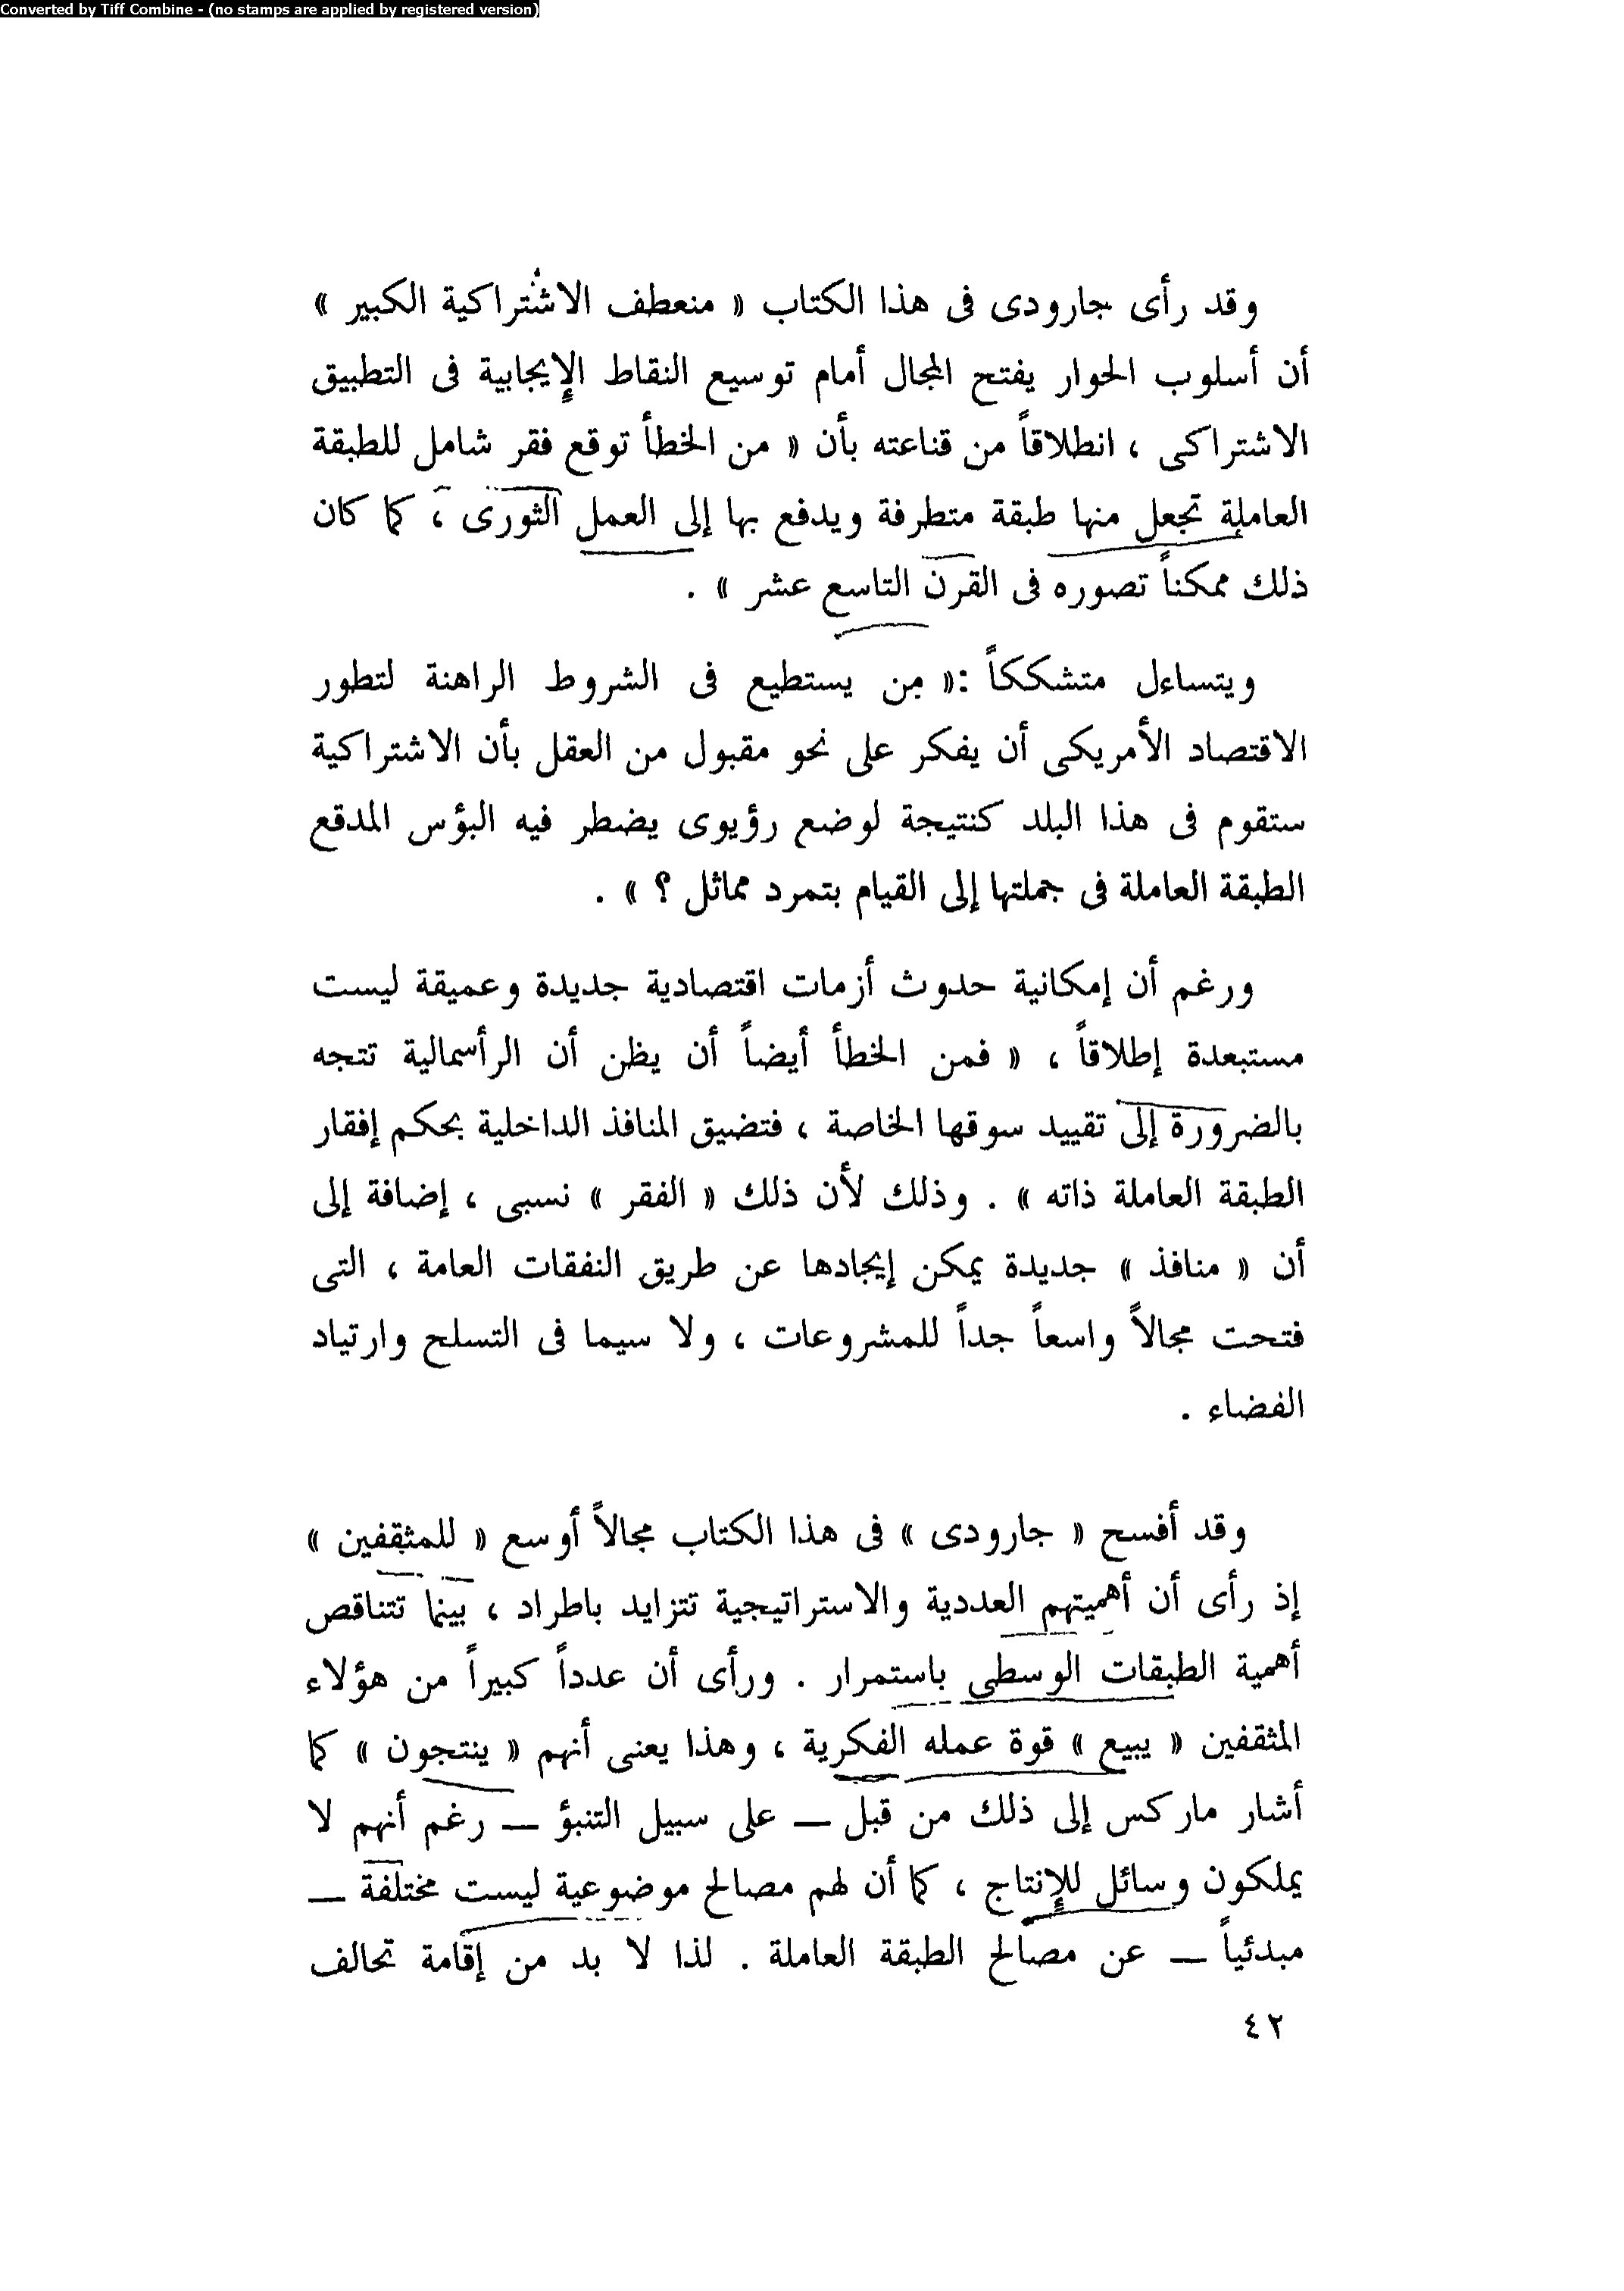 Converted by Tiff Combine - (no stamps are applied by registered version)
وقد رأى جارودى فى هذا الكتاب « منعطف الاشتراكية الكبير »
أن أسلوب الحوار يفتح المجال أمام توسيع النقاط الإيجابية فى التطبيق
الاشتراكى ، انطلاقاً من قناعته بأن « من الخطأ توقع فقر شامل للطبقة
العاملة تجعل منها طبقة متطرفة ويدفع بها إلى العمل الثورى ، كما كان
ذلك ممكناً تصوره فى القرن التاسع عشر » .
ويتساءل متشككاً :« من يستطيع فى الشروط الراهنة لتطور
الاقتصاد الأمريكى أن يفكر على نحو مقبول من العقل بأن الاشتراكية
ستقوم فى هذا البلد كنتيجة لوضع رؤيوى يضطر فيه البؤس المدقع
الطبقة العاملة فى جملتها إلى القيام بتمرد مماثل ؟ » .
ورغم أن إمكانية حدوث أزمات اقتصادية جديدة وعميقة ليست
مستبعدة إطلاقاً ، « فمن الخطأ أيضاً أن يظن أن الرأسمالية تتجه
بالضرورة إلى تقييد سوقها الخاصة ، فتضيق المنافذ الداخلية بحكم إفقار
الطبقة العاملة ذاته » . وذلك لأن ذلك « الفقر » نسبى ، إضافة إلى
أن « منافذ » جديدة يمكن إيجادها عن طريق النفقات العامة ، التى
فتحت مجالاً واسعاً جداً للمشروعات ، ولا سيما فى التسلح وارتياد
الفضاء .
وقد أفسح « جارودى » فى هذا الكتاب مجالاً أوسع « للمثقفين »
إذ رأى أن أهميتهم العددية والاستراتيجية تتزايد باطراد ، بينما تتناقص
أهمية الطبقات الوسطى باستمرار . ورأى أن عدداً كبيراً من هؤلاء
المثقفين « يبيع » قوة عمله الفكرية ، وهذا يعنى أنهم « ينتجون » كما
أشار ماركس إلى ذلك من قبل — على سبيل التنبؤ — رغم أنهم لا
يملكون وسائل للإنتاج ، كما أن لهم مصالح موضوعية ليست مختلفة —
مبدئياً — عن مصالح الطبقة العاملة . لذا لا بد من إقامة تحالف
٤٢